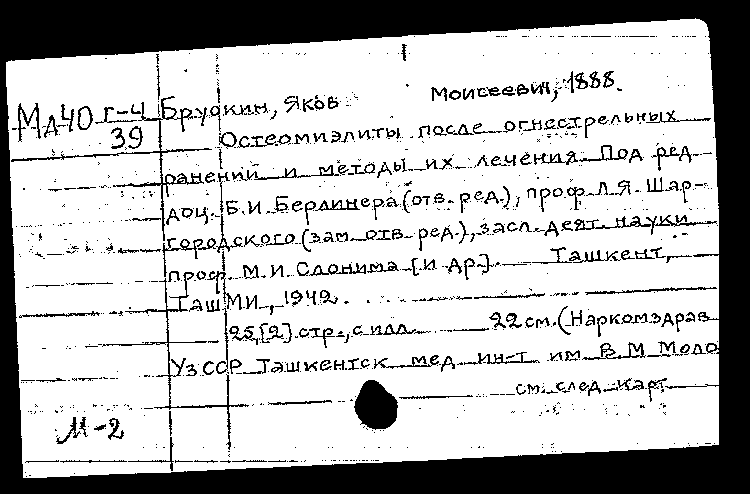 Мд40 г-4
39
Брускин, Яков Моисеевич, 1888.
Остеомиэлиты после огнестрельных
ранений и методы их лечения. Под ред.
доц. Б.И. Берлинера (отв. ред.), проф. Л.Я. Шар-
городского (зам. отв. ред.), засл. деят. науки
проф. М.И. Слонима [и др.]. Ташкент,
ТашМИ, 1942.
25,[2] стр., с илл. 22 см. (Наркомздрав
УзССР Ташкентск мед ин-т им В М Моло
см. след. карт.
М-2